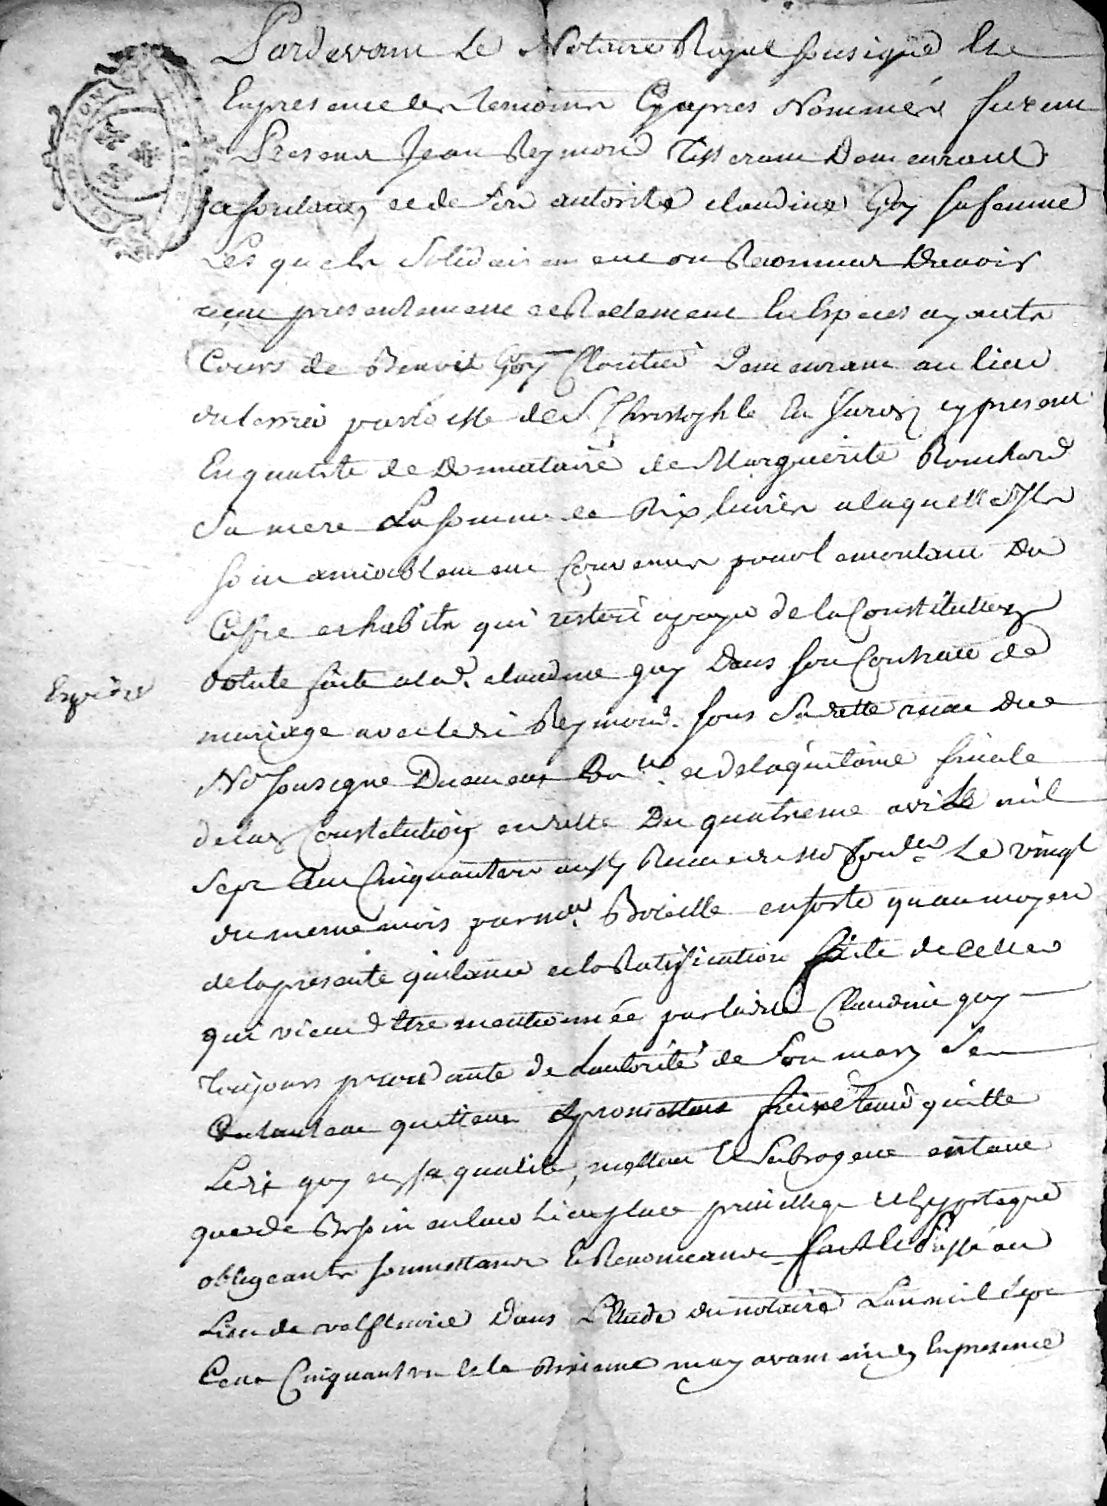 Pardevant Le Notaire Royal sousigné Et
En presence des temoins Cy apres Nommés furent
Presens Jean Reymond Tisserant Demeurant
a et de son autorité claudine Guy sa femme
Les quels solidairement on Reconnus D'avoir
reçeu presentement et Reelement En Especes ayants
Cours de Benoit Guy Cloutié Demeurant au lieu
du paroisse de St Christophle En Jarez cy present
En qualité de Donnataire de Marguerite Bouchard
Sa mere La somme de Dix livres a laquelle Ils
soin amiablement Convenus pour le montant Du
Cofre et habits qui restoit a payé de la Constitution
dotale faite a lad. claudine guy Dans son Contract de
mariage avec ledi Reymond sous Sa dette recue Due
No sousigné et de la quitance finale
de lad Constitution en dette Du quatrieme avril mil
Sept Cen Cinquante aussy Recue du no Le vingt
du meme mois par Boielle en sorte quau moyen
de la presente quitance et la Ratification faite de celle
qui vien d'Etre mentionnée par ladie Claudine guy
Toujours procedante de Lautorité de son mary S'en
Contantent quittent Et promettent faire tenir quitte
Ledi guy en sa qualité, mettent Et Subrogent en tant
que de Besoin en leur Lieu place privillege et hypoteque
obligeants soummettants Et Renonceants fait Et Passé au
Lieu de valfleurie Dans L'Etude du notaire L'an mil Sept
Cent Cinquante Et le may avant midy En presence
Expédié